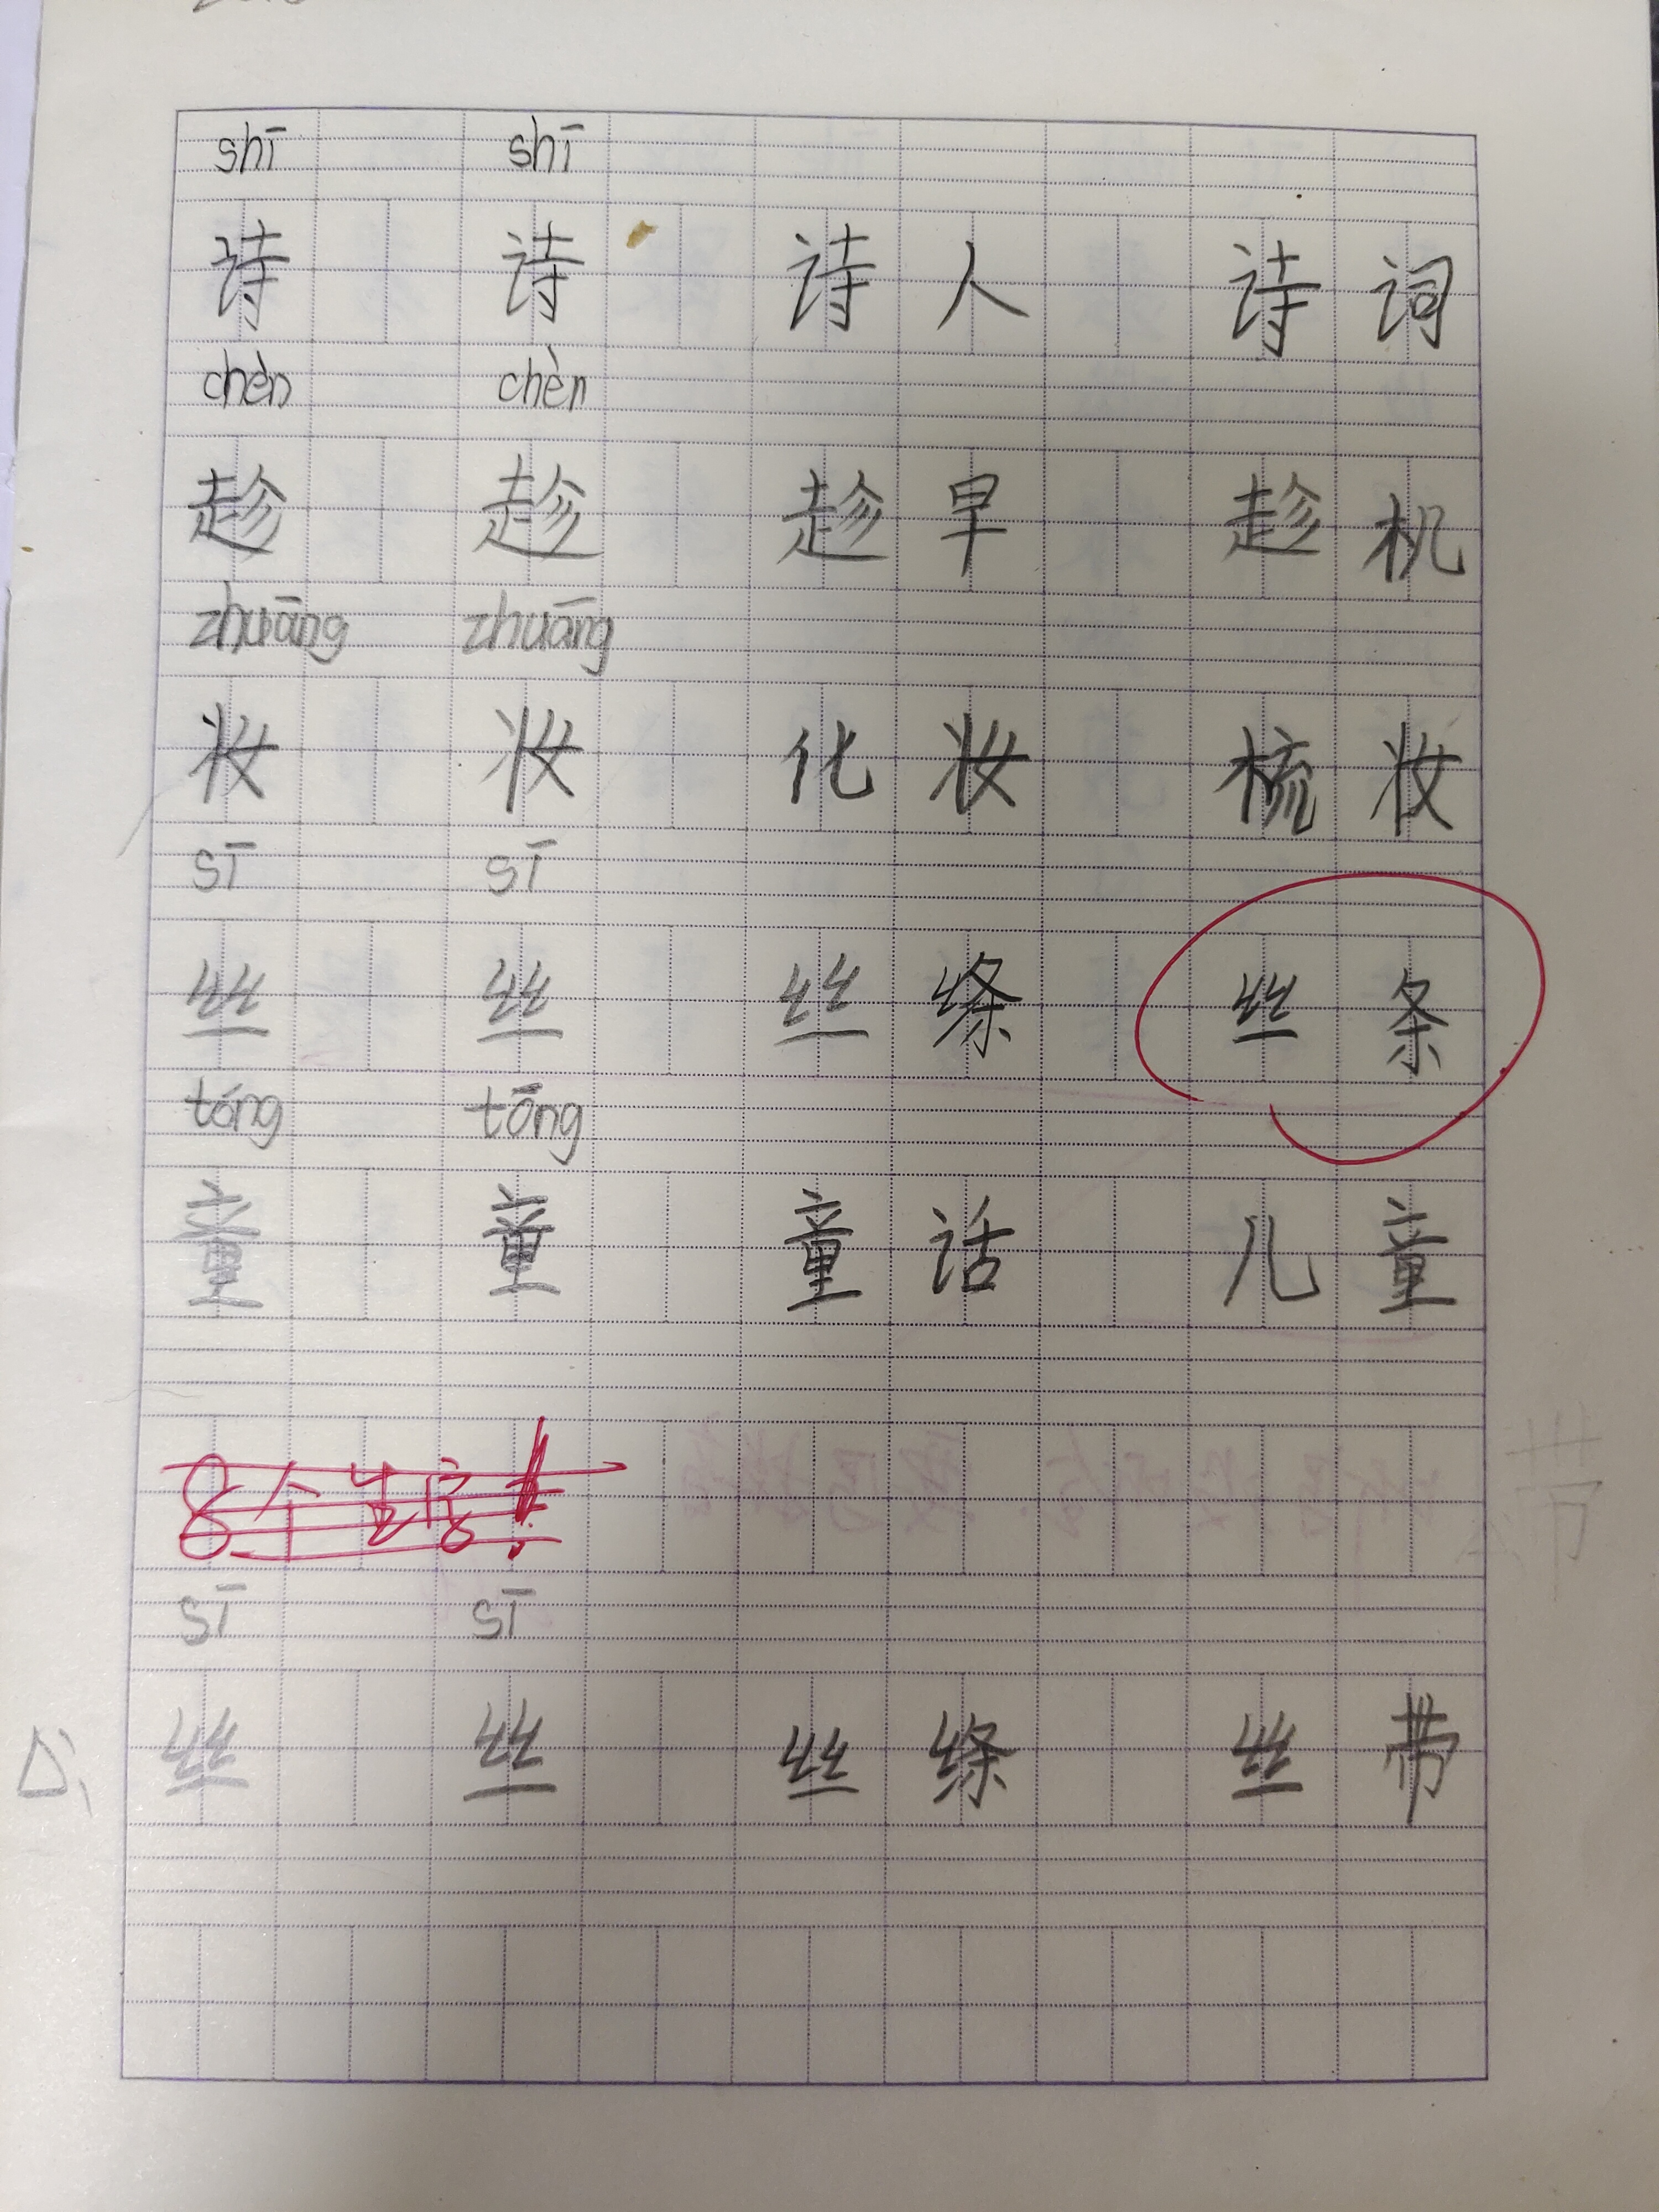 shī shī
诗 诗 诗人 诗词
chèn chèn
趁 趁 趁早 趁机
zhuāng zhuāng
妆 妆 化妆 梳妆
sī sī
丝 丝 丝绦 丝条
tóng tōng
童 童 童话 儿童
8个
sī sī
丝 丝 丝绦 丝带